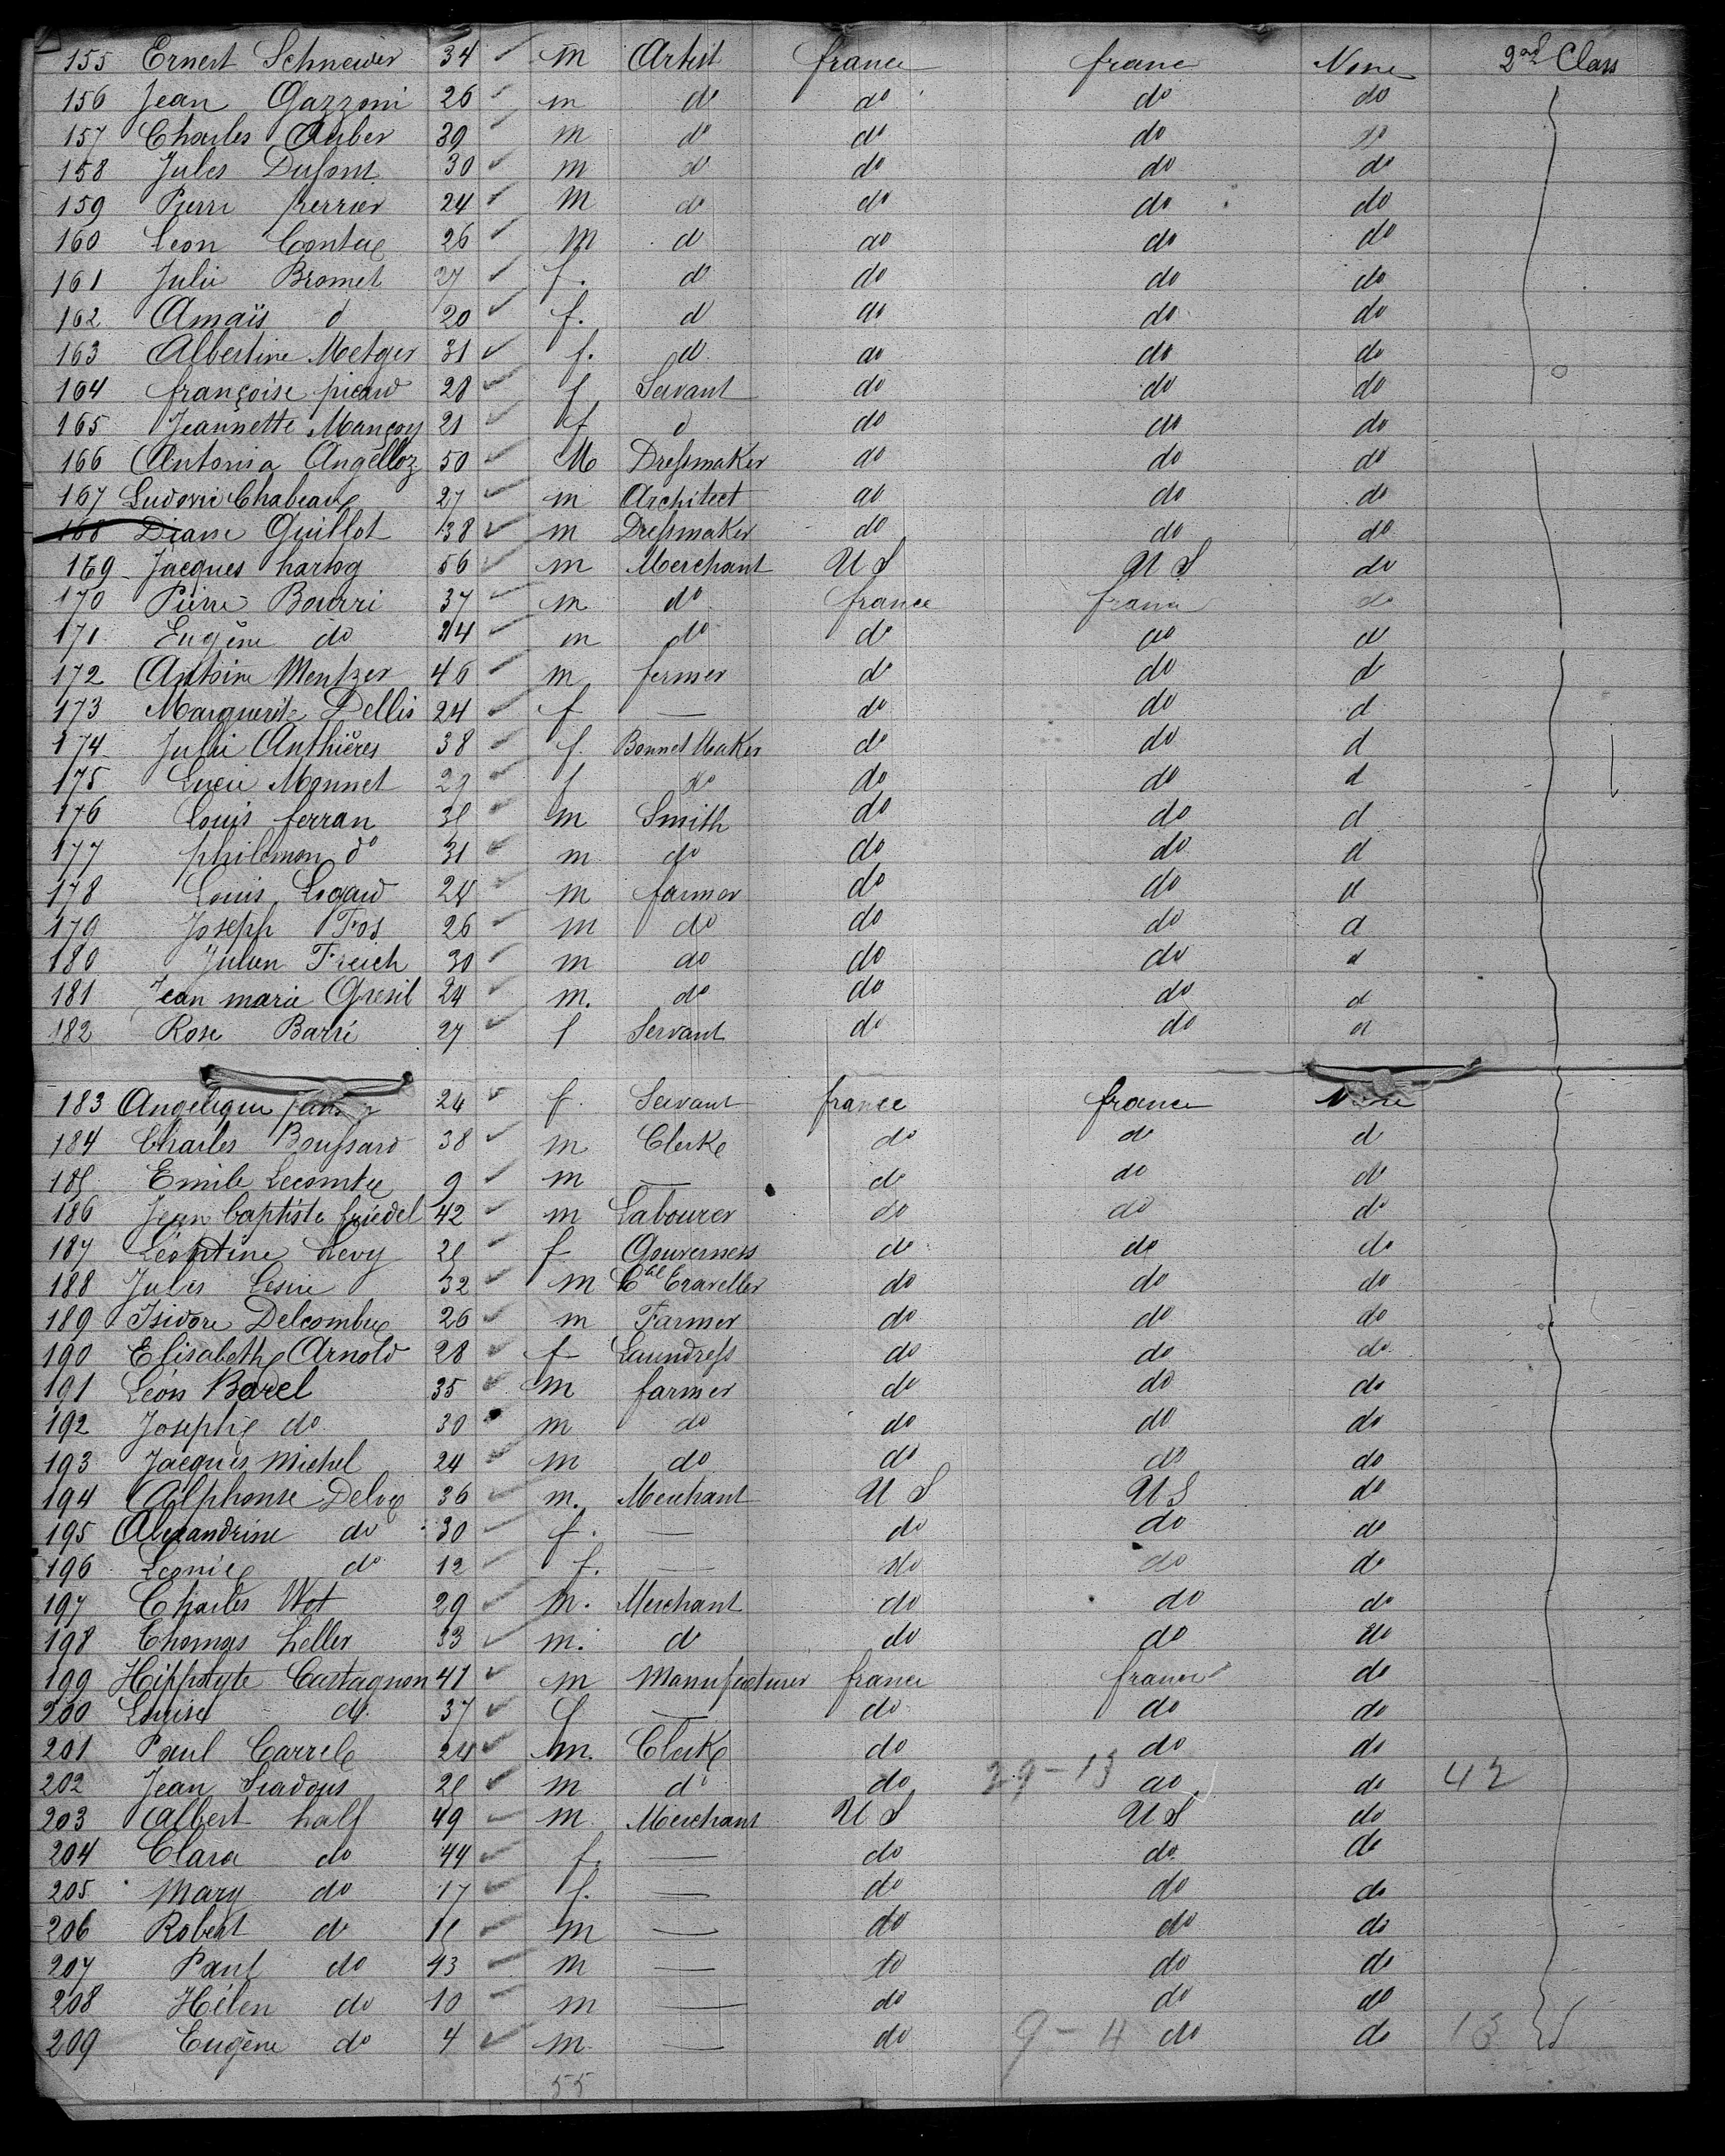 155 Ernest Schneider 34 m Artist france france None 2nd Class
156 Jean Gazzoni 26 m do do do do
157 Charles Auber 39 m do do do do
158 Jules Dufont 30 m do do do do
159 Pierre ferrier 24 m do do do do
160 Leon Contue 26 m d do do do
161 Julie Bromet 27 f. d do do do
162 Amaïs d 20 f. d do do do
163 Albertine Metger 31 f. d do do do
164 françoise picard 28 f Servant do do do
165 Jeannette Mançoy 21 f d do do do
166 Antonia Angelloz 50 M Dressmaker do do do
167 Ludovic Chabeaux 27 m Architect do do do
168 Diane Guillot 38 m Dressmaker do do do
169 Jacques hartog 56 m Merchant U S U S do
170 Pierre Bourri 37 m do france france do
171 Eugène do 24 m do do do d
172 Antoine Mentzer 46 m fermer do do d
173 Marguerite Dellis 24 f — do do d
174 Julie Anthières 38 f. Bonnet Maker do do d
175 Lucie Monnet 29 f do do do d
176 Louis ferran m Smith do do d
177 philemon do 31 m do do do d
178 Louis Logard 24 m farmer do do d
179 Joseph Fos 26 m do do do d
180 Julien Freich 30 m do do do d
181 Jean marie Gresil 24 m. do do do d
182 Rose Barré 27 f Servant do do d
183 Angelique 24 f. Servant france france None
184 Charles Boussard 38 m Clerk do d d
185 Emile Lecomte 9 m — do do do
186 Jean baptiste friedel 42 m Labourer do do do
187 Léontine Levy f Gouverness do do do
188 Jules Lesire 32 m Cial Traveller do do do
189 Isidore Delcombre 26 m Farmer do do do
190 Elisabeth Arnold 28 f Laundress do do do
191 Léon Borel 35 m farmer do do do
192 Joseph do 30 m do do do do
193 Jacques Michel 24 m do do do do
194 Alphonse Deloy 36 m. Merchant U S U S do
195 Alexandrine do 30 f. — do do do
196 Leonie do 12 f. — do do do
197 Charles Wot 29 m. Merchant do do do
198 Thomas heller 33 m. d do do do
199 Hippolyte Castagnon 41 m Manufacturer france france do
200 Louise do 37 f — do do do
201 Paul Carrel 24 m. Clerk do do do
202 Jean m do do 29-13 do do 42
203 Albert half 49 m Merchant U S U S do
204 Clara do 44 f. — do do do
205 Mary do 17 f. — do do do
206 Robert do m — do do do
207 Paul do 13 m — do do do
208 Hélen do 10 m — do do do
209 Eugène do 4 m — do 9-4 do do 13
55